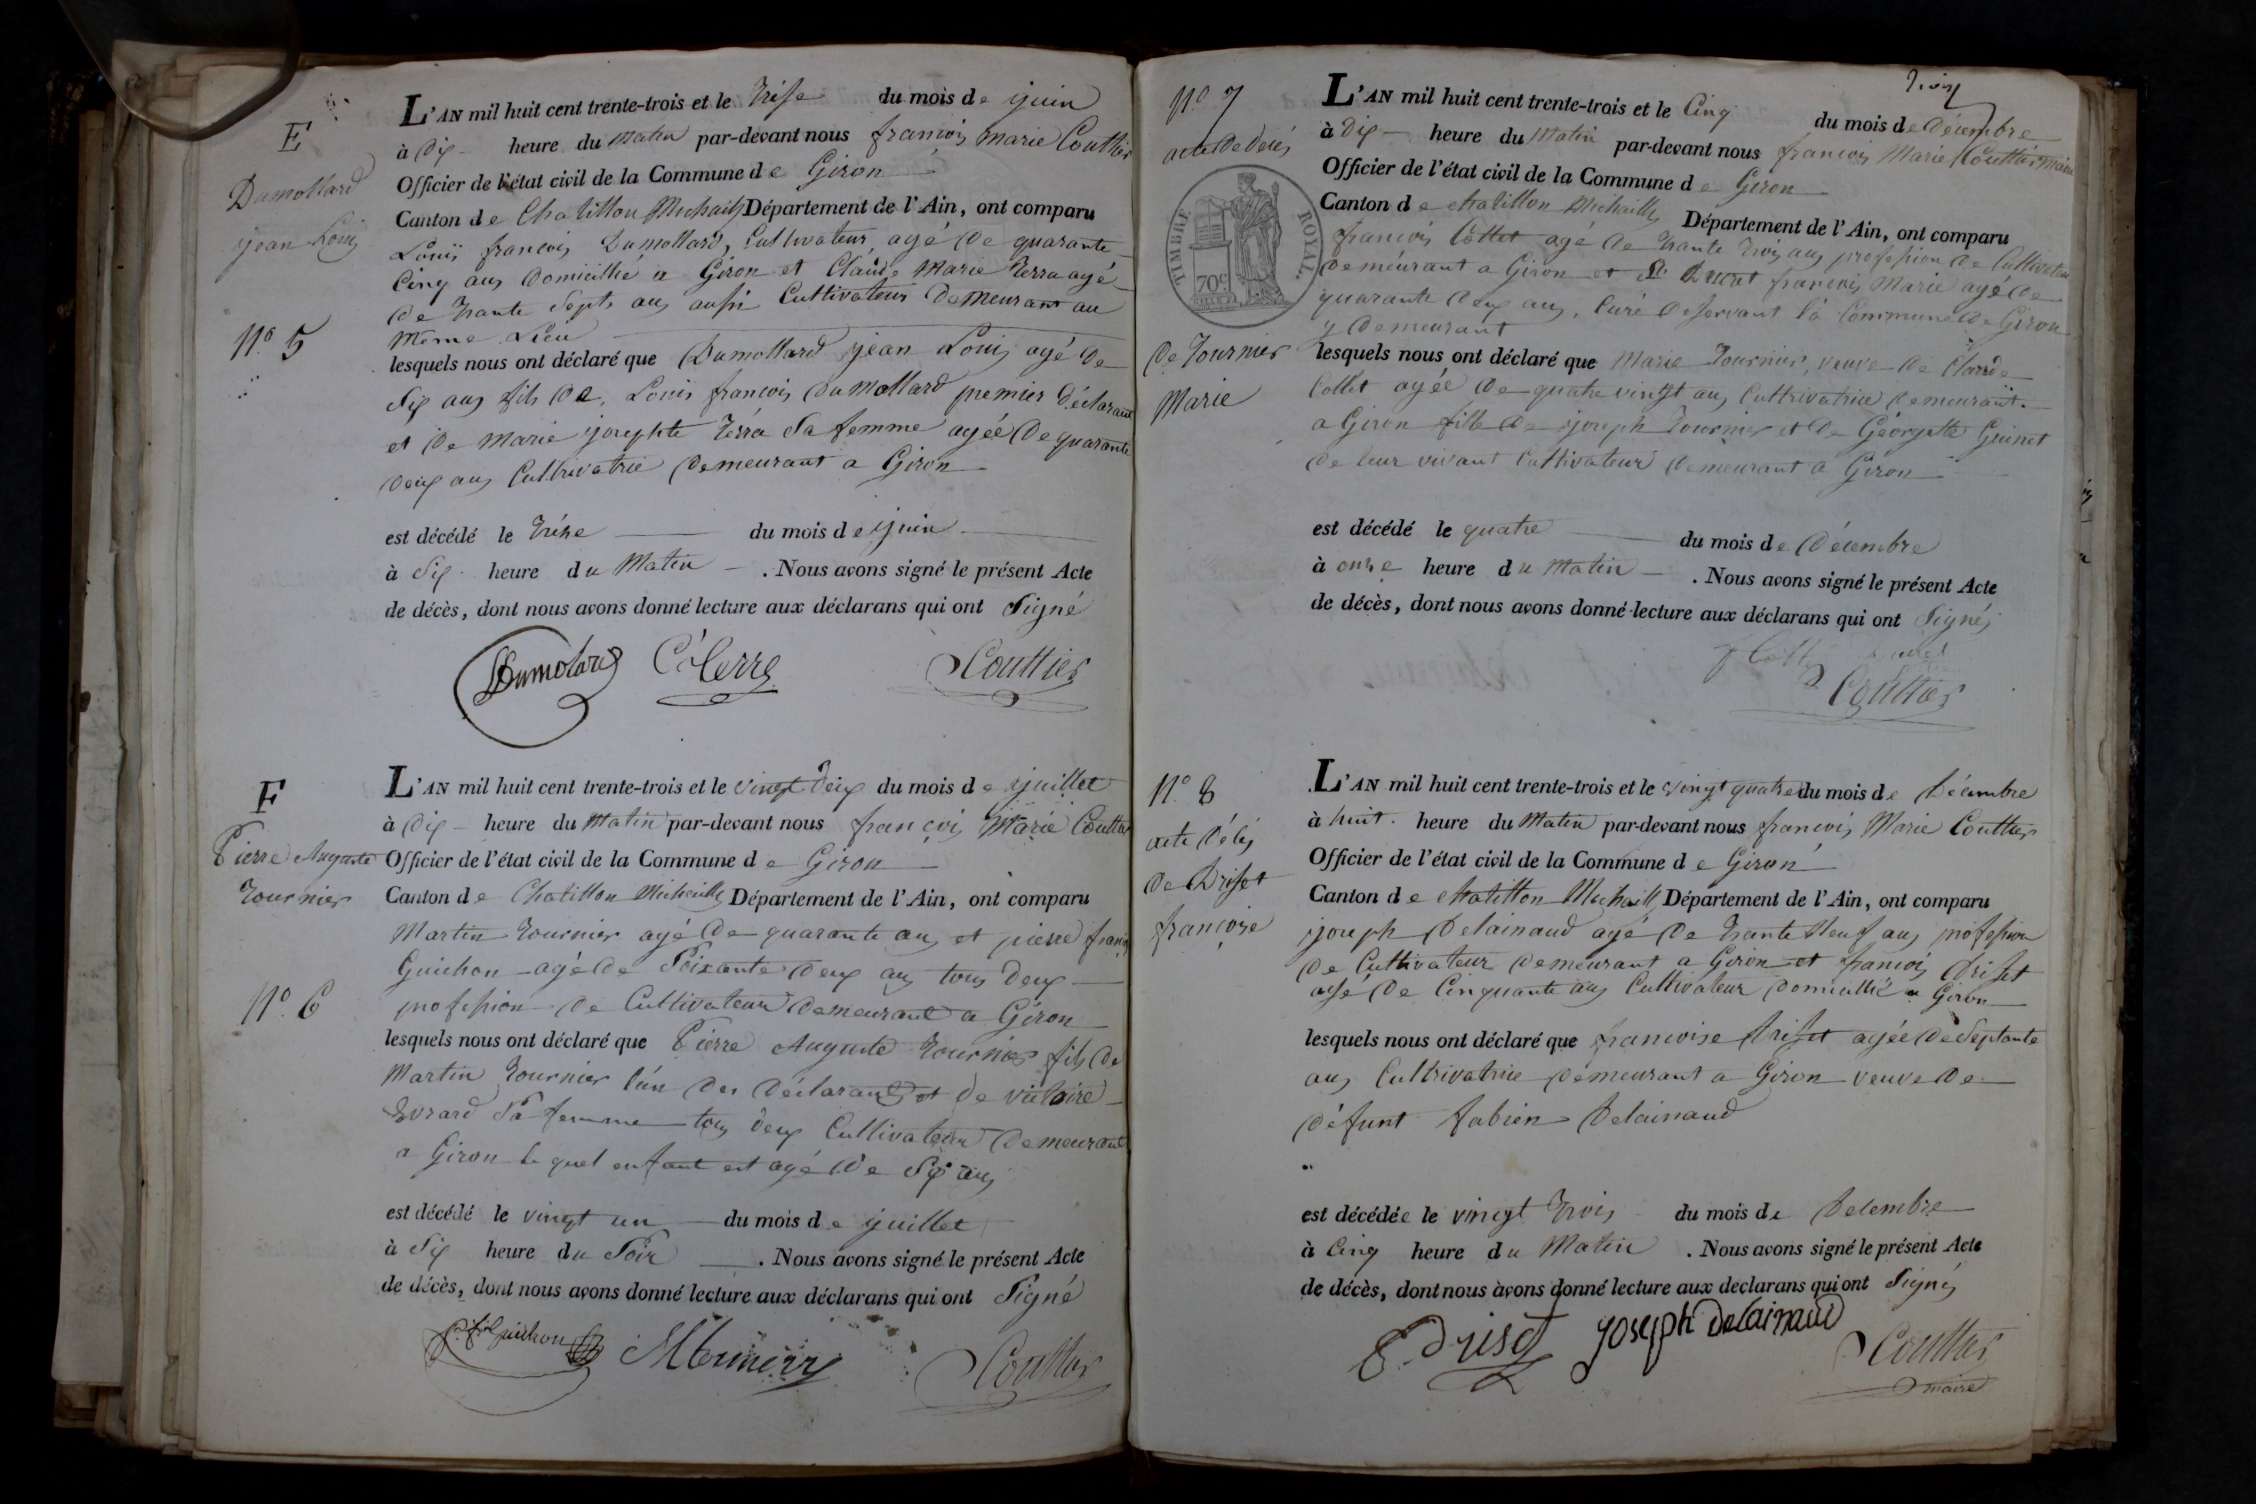 E
Dumollard
jean Louis
N.o 5
L'AN mil huit cent trente-trois et le treise du mois de juin
à dix heure du matin par-devant nous françois marie Couttier
Officier de l'état civil de la Commune de Giron
Canton de Chatillon Michaille Département de l'Ain, ont comparu
Louis francois Dumollard, Cultivateur, agé de quarante
Cinq ans domicillié a Giron et Claude Marie Terra agé
de trante Septs ans aussi Cultivateur demeurant au
même Lieu
lesquels nous ont déclaré que Dumollard jean Louis agé de
Six ans fils de Louis francois Dumollard premier déclarant
et de marie josephte Térra Sa femme agée de quarante
deux ans Cultivatrice demeurant a Giron
est décédé le treize du mois de juin
à Six heure du Matin . Nous avons signé le présent Acte
de décès, dont nous avons donné lecture aux déclarans qui ont Signé
Dumolard Terra Couttier
F
Pierre Auguste
Tournier
N.o 6
L'AN mil huit cent trente-trois et le vingt deux du mois de juillet
à dix heure du matin par-devant nous françois Marie Couttier
Officier de l'état civil de la Commune de Giron
Canton de Chatillon Michaille Département de l'Ain, ont comparu
Martin Tournier agé de quarante ans et pierre francois
Guichon agé de Soixante deux ans tous deux
profession de Cultivateur demeurant a Giron
lesquels nous ont déclaré que Pierre Auguste Tournier fils de
Martin Tournier l'un des déclarant et de victoire
Evrard Sa femme tous deux Cultivateur demeurant
a Giron le quel enfant est agé de Six ans
est décédé le vingt un du mois de juillet
à Six heure du Soir . Nous avons signé le présent Acte
de décès, dont nous avons donné lecture aux déclarans qui ont Signé
guichon Couttier
N.o 7
acte de décés
TIMBRE ROYAL.
70c
de Tournier
Marie
trois
L'AN mil huit cent trente-trois et le Cinq du mois de décembre
à dix heure du Matin par-devant nous francois Marie Couttier maire
Officier de l'état civil de la Commune de Giron
Canton de chatillon Michaille Département de l'Ain, ont comparu
francois Collet agé de trante trois ans profession de Cultivateur
demeurant a Giron et francois Marie agé de
quarante deux ans, Curé desservant la Commune de Giron
y demeurant
lesquels nous ont déclaré que Marie Tournier, veuve de Claude
Collet agée de quatre vingt ans Cultivatrice demeurant
a Giron fille de joseph Tournier et de Géorgette Guinet
de leur vivant Cultivateur demeurant a Giron
est décédé le quatre du mois de Décembre
à onze heure du Matin . Nous avons signé le présent Acte
de décès, dont nous avons donné lecture aux déclarans qui ont Signés
Couttier
N.o 8
acte décés
de Driset
françoise
L'AN mil huit cent trente-trois et le vingt quatre du mois de Décembre
à huit heure du Matin par-devant nous francois Marie Couttier
Officier de l'état civil de la Commune de Giron
Canton de chatillon Michaille Département de l'Ain, ont comparu
joseph Delainaud agé de trante Neuf ans profession
de Cultivateur demeurant a Giron et francois Driset
agé de Cinquante ans Cultivateur domicillié a Giron
lesquels nous ont déclaré que francoise Driset agée de Septante
ans Cultivatrice démeurant a Giron veuve de
défunt fabien Delainaud
est décédée le vingt trois du mois de Decembre
à Cinq heure du Matin . Nous avons signé le présent Acte
de décès, dont nous avons donné lecture aux déclarans qui ont Signés
driset joseph delainaud Couttier
maire